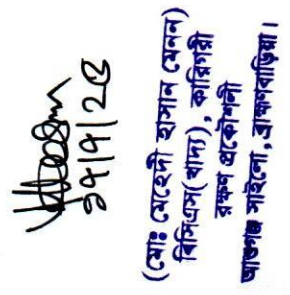 ২৭/৭/২৫
(মোঃ মেহেদী হাসান মেনন)
বিসিএস(খাদ্য), কারিগরী
রক্ষণ প্রকৌশলী
আশুগঞ্জ সাইলো, ব্রাহ্মণবাড়িয়া।